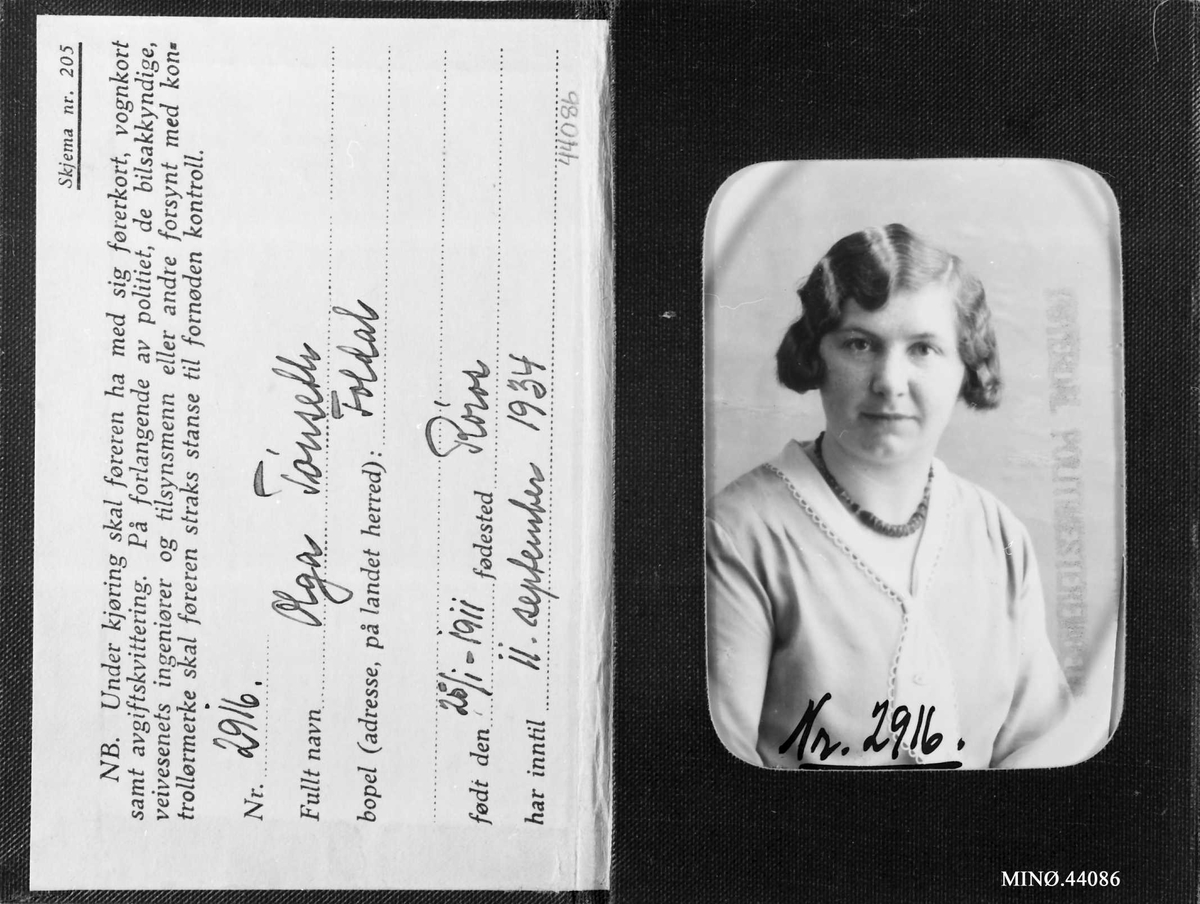 Skjema nr. 205
NB. Under kjøring skal føreren ha med sig førerkort, vognkort
samt avgiftskvittering. På forlangende av politiet, de bilsakkyndige,
veivesenets ingeniører og tilsynsmenn eller andre forsynt med kon=
trollørmerke skal føreren straks stanse til fornøden kontroll.
Nr. 2916.
Fullt navn Olga Tönseth
bopel (adresse, på landet herred): Foldal
født den 28/1-1911 fødested Röros
har inntil 11. september 1934
44086
Nr. 2916.
MINØ.44086